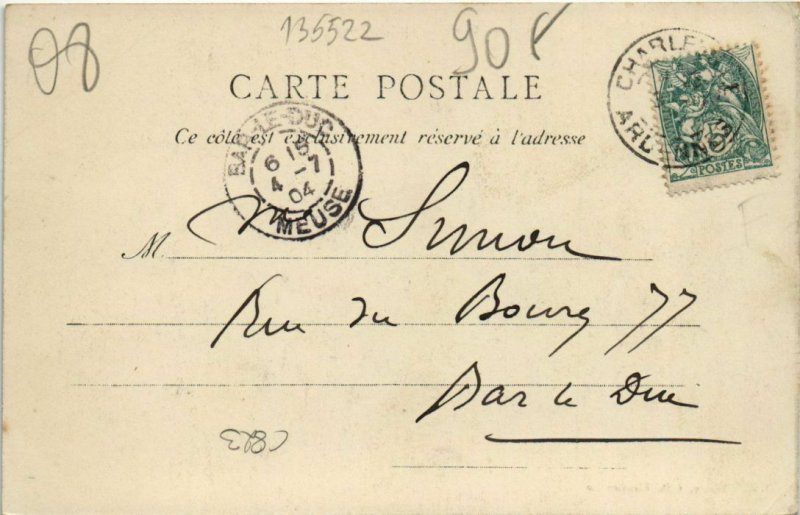 08
135522
90f
CARTE POSTALE
Ce côté est exclusivement réservé à l'adresse
BAR-LE-DUC
6 15
4 -7
04
MEUSE
POSTES
M. Simon
Rue du Bourg 77
Bar le Duc